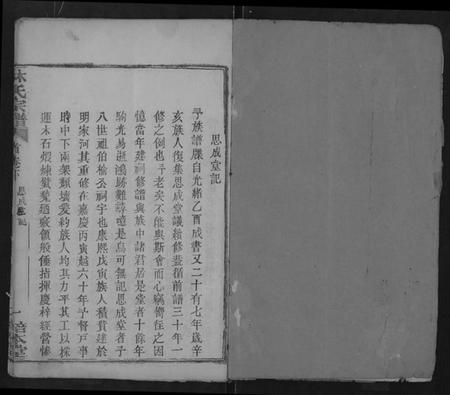 思成堂記
予族譜牒自光緒乙酉成書又二十有七年歲辛
亥族人復集思成堂議續修蓋循前譜三十年一
修之例也予老矣不能與斯會而心竊嚮往之因
憶當年建祠修譜與族中諸君居是堂者十餘年
駒光易逝鴻跡難尋噫是烏可無記思成堂者予
八世祖伯榆公祠宇也康熙戊寅族人積貲建於
明家河其重修在嘉慶丙寅越六十年予督戸事
時中下兩架頹壞爰約族人均其力平其工以採
運木石煅練甓甃過竅領般倕指揮慶梓經營慘
林氏宗譜
首卷下
思成堂記
一
培本堂